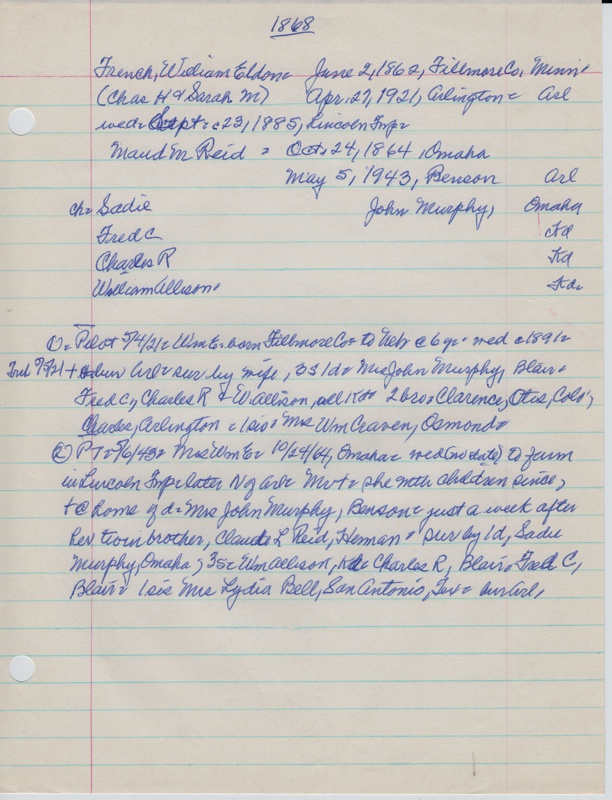 1868
French, William Eldon= June 2, 1862, Fillmore Co, Minn=
(Chas H & Sarah M) Apr. 27, 1921, Arlington= Arl
wed= Sept = c23, 1885, Lincoln Tnp=
Maud M Reid = Oct. 24, 1864, Omaha
May 5, 1943, Benson Arl
ch= Sadie John Murphy, Omaha
Fred C Kd
Charles R Kd
William Allison= Kd=
①= Pilot 5/4/21= Wm E= born Fillmore Co= to Neb c 6 yr= wed c1891=
+ bur Arl= sur by wife, 3S 1d= Mrs John Murphy, Blair=
Fred C, Charles R & W Allison, all Kd= 2 bro= Clarence, Otis, Colo;
Charles, Arlington = 1 sis= Mrs Wm Craven, Osmond=
② PT= 5/6/43= Mrs Wm E= 10/24/64, Omaha= wed (no date) to farm
in Lincoln Tnp= later N of Ar= Mr + = she with children since,
+ @ home of d= Mrs John Murphy, Benson= just a week after
her twin brother, Claude L Reid, Heman= sur by 1d, Sadie
Murphy, Omaha; 3s= Wm Allison, Kd= Charles R, Blair= Fred C,
Blair= 1 sis Mrs Lydia Bell, San Antonio, Tex= bur Arl.